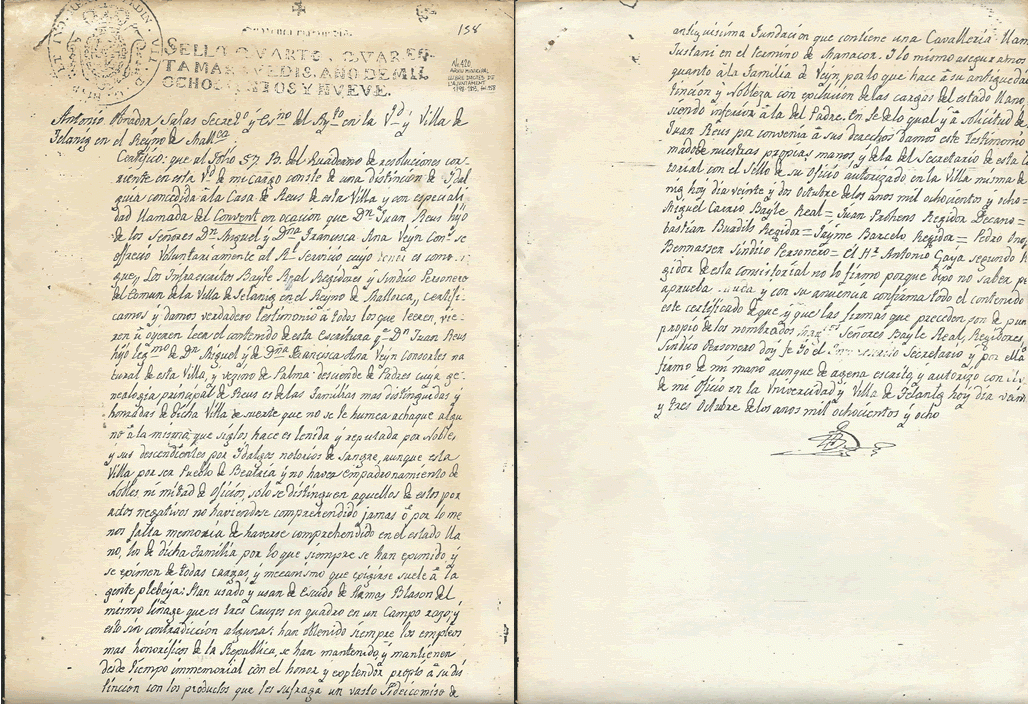 158
SELLO QVARTO, QVAREN-
TAMARAVEDIS, AÑO DE MIL
OCHOCIENTOS Y NUEVE.
Antonio Obrador Salas Secreto y Esno del Ayto en la Vd y Villa de
Felanig en el Reyno de Mallca
Certifico: que al folio 57 B. del Quaderno de resoluciones cor-
riente en esta Vd de mi cargo conste de una distincion de Idal
guia concedida à la Casa de Reus de esta Villa y con especiali
dad llamada del Convent en ocacion que Dn Juan Reus hijo
de los Señores Dn Miguel y Dña Francisca Ana Veyn Cons se
ofrecio Voluntariamente al Rl Servicio cuyo tenor es como si
gue,, Los Infraescritos Bayle Real Regidores y Sindico Personero
del Comun de la Villa de Felanig en el Reyno de Mallorca,, Certifi
camos y damos verdadero testimonio à todos los que leeren, vie-
ren ù oyeren leer el contenido de esta Escritura qe Dn Juan Reus
hijo legmo de Dn Miguel y de Dña Francisca Ana Veyn Consortes na
tural de esta Villa, y vezino de Palma: desciende de Padres cuya ge-
nealogia principal de Reus es de las Familias mas distinguidas y
honradas de dicha Villa de suerte que no se le humea achaque algu
no à la misma que siglos hace es tenida y reputada por Nobles
y sus descendientes por Idalgos notorios de Sangre, aunque esta
Villa por ser Pueblo de Beatria y no haver empadronamiento de
Nobles, ni mitad de oficios, solo se distinguen aquellos de estos por
actos negativos no haviendose comprehendido jamas ò por lo me
nos falta memoria de haverse comprehendido en el estado lla
no, los de dicha Familia por lo que siempre se han eximido, y
se eximen de todas cargas, y mecanismo que exigirse suele à la
gente plebeya: Han usado y usan de Escudo de Armas Blason del
mismo linage que es tres Cruzes en quadro en un Campo roxo; y
esto sin contradiccion alguna: han obtenido siempre los empleos
mas honorificos de la Republica, se han mantenido, y mantienen
desde tiempo immemorial con el honor y explendor propio à su dis
tincion con los productos que les sufraga un vasto Fideicomiso de
antiquisima Fundacion que contiene una Cavalleria llam
Justani en el termino de Manacor. I lo mismo aseguramos
quanto à la Familia de Veyn, por lo que hace à su antiguedad
tincion y Nobleza con exclucion de las cargas del estado llano
siendo inferior à la del Padre. En fe de lo qual y à solicitud de
Juan Reus por convenia à sus derechos damos este Testimonio
mado de nuestras propias manos, y de la del Secretario de esta
torial con el Sello de su oficio autorizado, en la Villa misma de
nig hoy dia veinte y dos Octubre de los anos mil ochocientos y ocho =
Miguel Caxrio Bayle Real = Juan Pachens Regidor Decano =
bastian Burdils Regidor = Jayme Barcelo Regidor = Pedro Ono
Bennasser Sindico Personero = el Hr Antonio Gaya segundo
gidor de esta consistorial no lo firmo porque dixo no saber pe
aprueba y con su anuencia confirma todo el contenido
este certificado de que y que las firmas que preceden son de pun
propio de los nombrados Señores Bayle Real, Regidores,
Sindico Personero doy fe Yo el Secretario y por ella
firmo de mi mano aunque de agena escaito y autorizo con
de mi oficio en la Vniversidad y Villa de Felanig hoy dia vein
y tres Octubre de los anos mil ochocientos y ocho